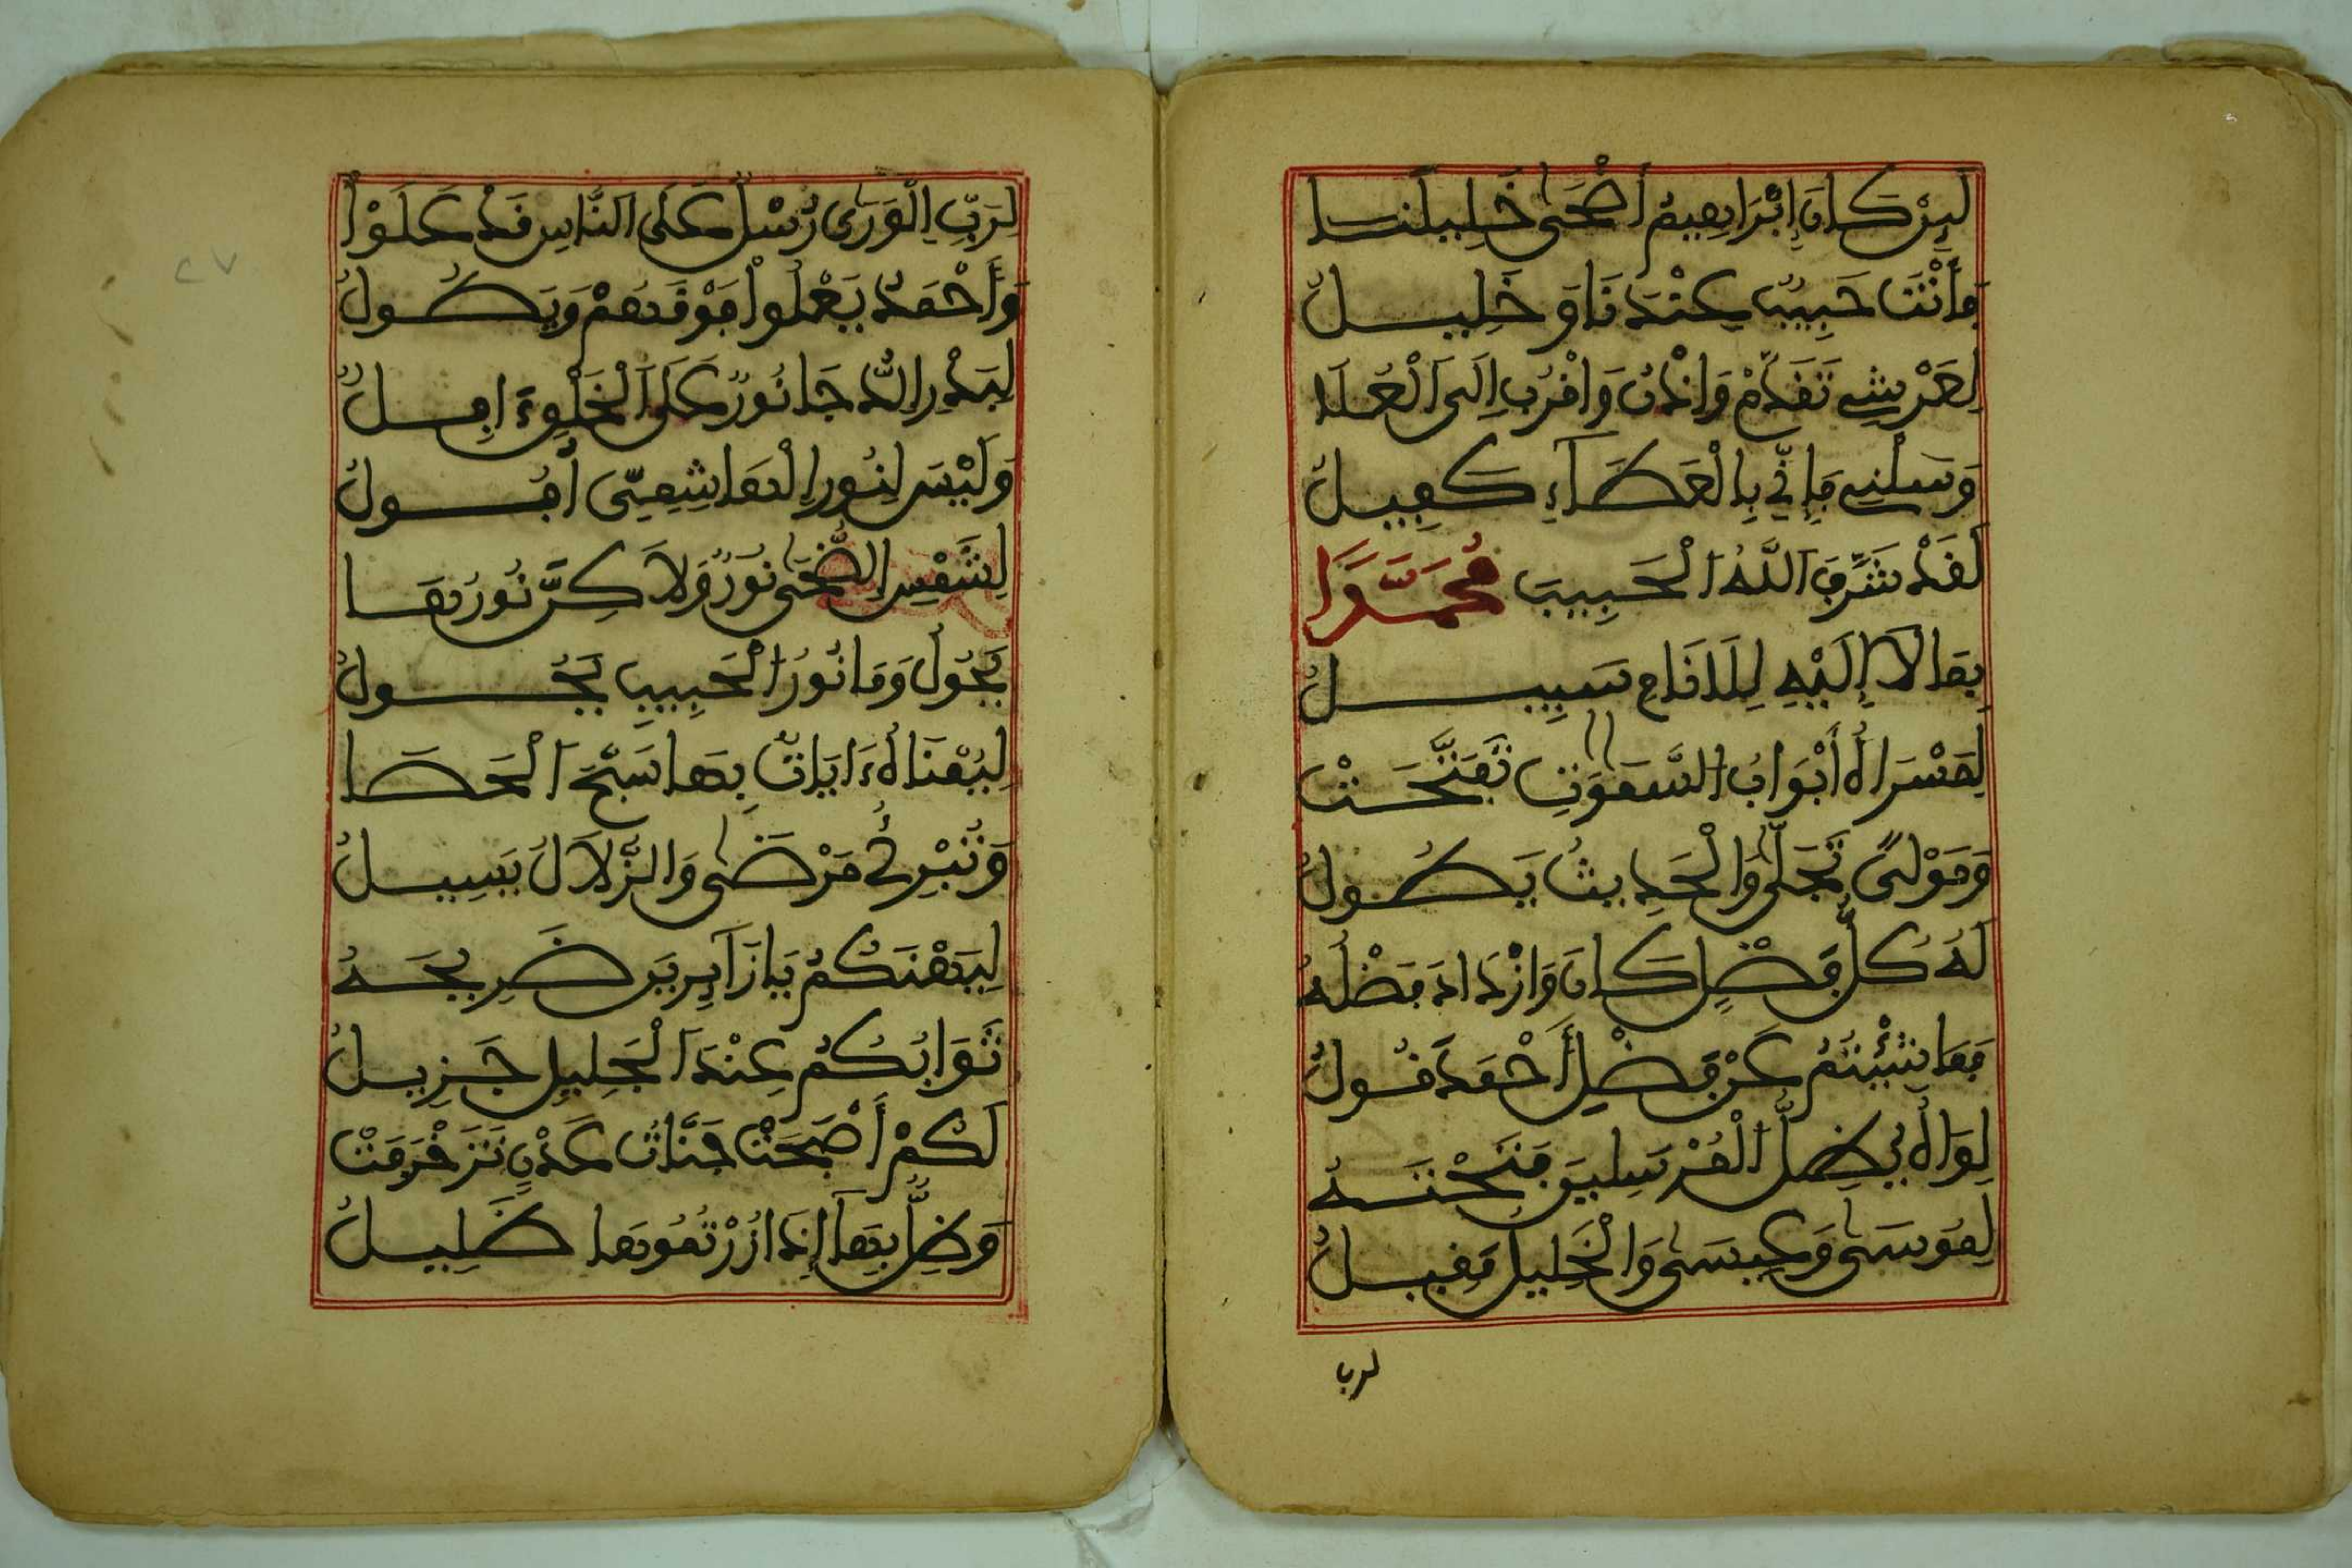 لَئِنْ كَانَ إِبْرَاهِيمُ أَضْحَى خَلِيلَنَا
فَأَنْتَ حَبِيبٌ عِنْدَنَا وَخَلِيلُ
لِعَرْشِي تَقَدَّمْ وَادْنُ وَاقْرُبْ اِلَى الْعُلَا
وَسَلْنِي فَإِنِّي بِالْعَطَآءِ كَفِيلُ
لَقَدْ شَرَّفَ اللَّهُ الْحَبِيبَ مُحَمَّدًا
بِمَا لَا إِلَيْهِ لِلْأَنَامِ سَبِيلُ
لِمَسْرَاهُ أَبْوَابُ السَّمَوَاتِ تَفَتَّحَتْ
وَمَوْلًى تَجَلَّى وَالْحَدِيثُ يَطُولُ
لَهُ كُلُّ فَضْلٍ كَانَ وَازْدَادَ فَضْلُهُ
فَمَا شِئْتُمُ عَنْ فَضْلِ أَحْمَدَ قُولُ
لِوَاهُ يُظِلُّ الْمُرْسَلِينَ فَتَحْتَهُ
لِمُوسَى وَعِيسَى وَالْخَلِيلِ مَقِيلُ
لرب
٢٧
لِرَبِّ الْوَرَى رُسْلٌ عَلَى النَّاسِ قَدْ عَلَوْا
وَأَحْمَدُ يَعْلُوا فَوْقَهُمْ وَيَطُولُ
لِبَدْرِ الدُّجَا نُورٌ عَلَى الْخَلْقِ ءَافِلٌ
وَلَيْسَ لِنُورِ الْهَاشِمِيِّ أُفُولُ
لِشَمْسِ الضُّحَى نُورٌ وَلَاكِنَّ نُورَهَا
يَحُولُ وَمَا نُورُ الْحَبِيبِ يَحُولُ
لِيُمْنَاهُ ءَايَاتٌ بِهَا سَبَّحَ الْحَصَا
وَتُبْرِئُ مَرْضَى وَالزُّلَالُ يَسِيلُ
لِيَهْنَكُمُ يَا زَآئِرِينَ ضَرِيحَهُ
ثَوَابُكُمُ عِنْدَ الْجَلِيلِ جَزِيلُ
لَكُمْ أَصْبَحَتْ جَنَّاتُ عَدْنٍ تَزَخْرَفَتْ
وَظِلٌّ بِهَآ إِذَا زُرْتُمُوهَا ظَلِيلُ